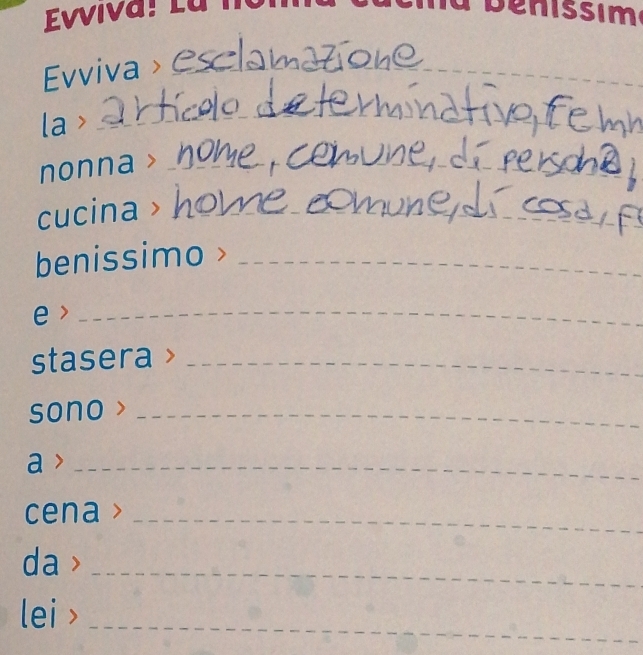 Evviva! La nonna cucina benissim
Evviva > esclamazione
la > articolo determinativo, femm
nonna > nome, comune, di persona,
cucina > nome comune, di cosa, f
benissimo >
e >
stasera >
sono >
a >
cena >
da >
lei >